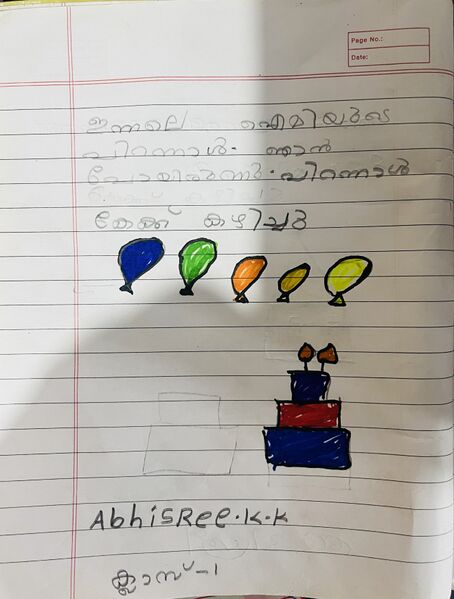 Page No.:
Date:
ഇന്നലെ ഐമിയുടെ
പിറന്നാൾ. ഞാൻ
പോയിരുന്നു. പിറന്നാൾ
കേക്ക് കഴിച്ചു
AbhisRee.K.K
ക്ലാസ് -1